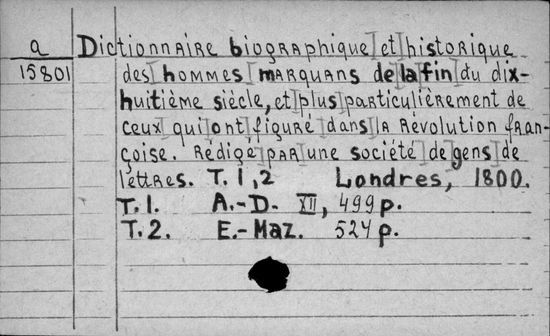 a Dictionnaire biographique et historique
15801 des hommes marquans de la fin du dix-
huitième siècle, et plus particulièrement de
ceux qui ont figuré dans la Révolution fran-
çoise. Rédigé par une société de gens de
lettres. T. 1,2 Londres, 1800.
T. 1. A.-D. XII, 499 p.
T. 2. E.-Maz. 524 p.